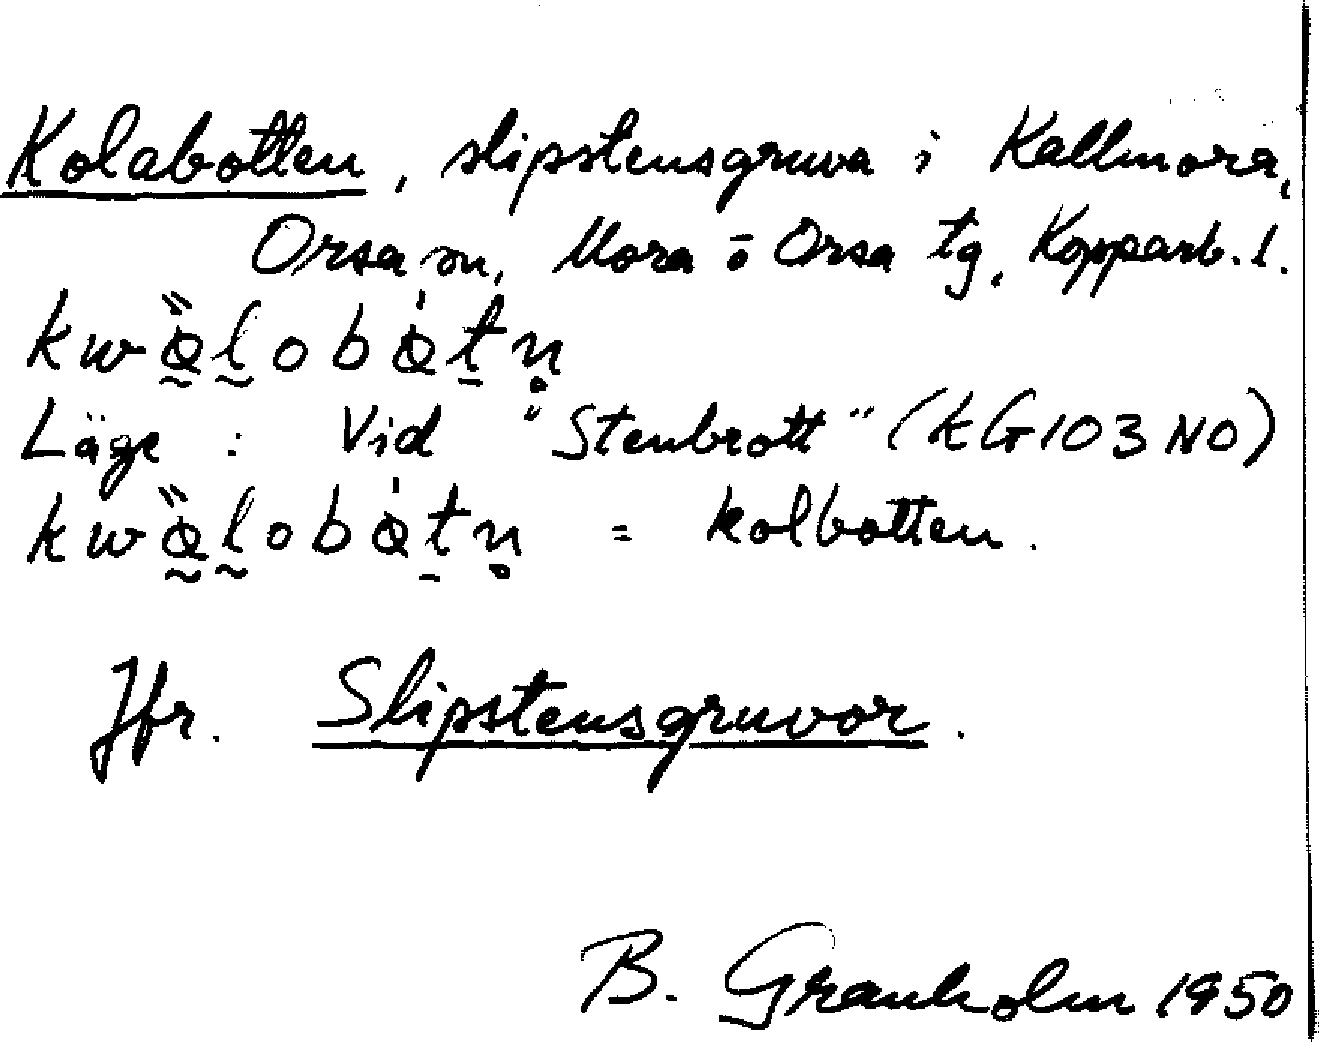 Kolabotten, slipstensgruva i Kallmora,
Orsa sn, Mora o Orsa tg, Kopparb. l.
Läge : Vid "Stenbrott" (KG103NO)
= kolbotten.
Jfr. Slipstensgruvor.
B. Granholm 1950